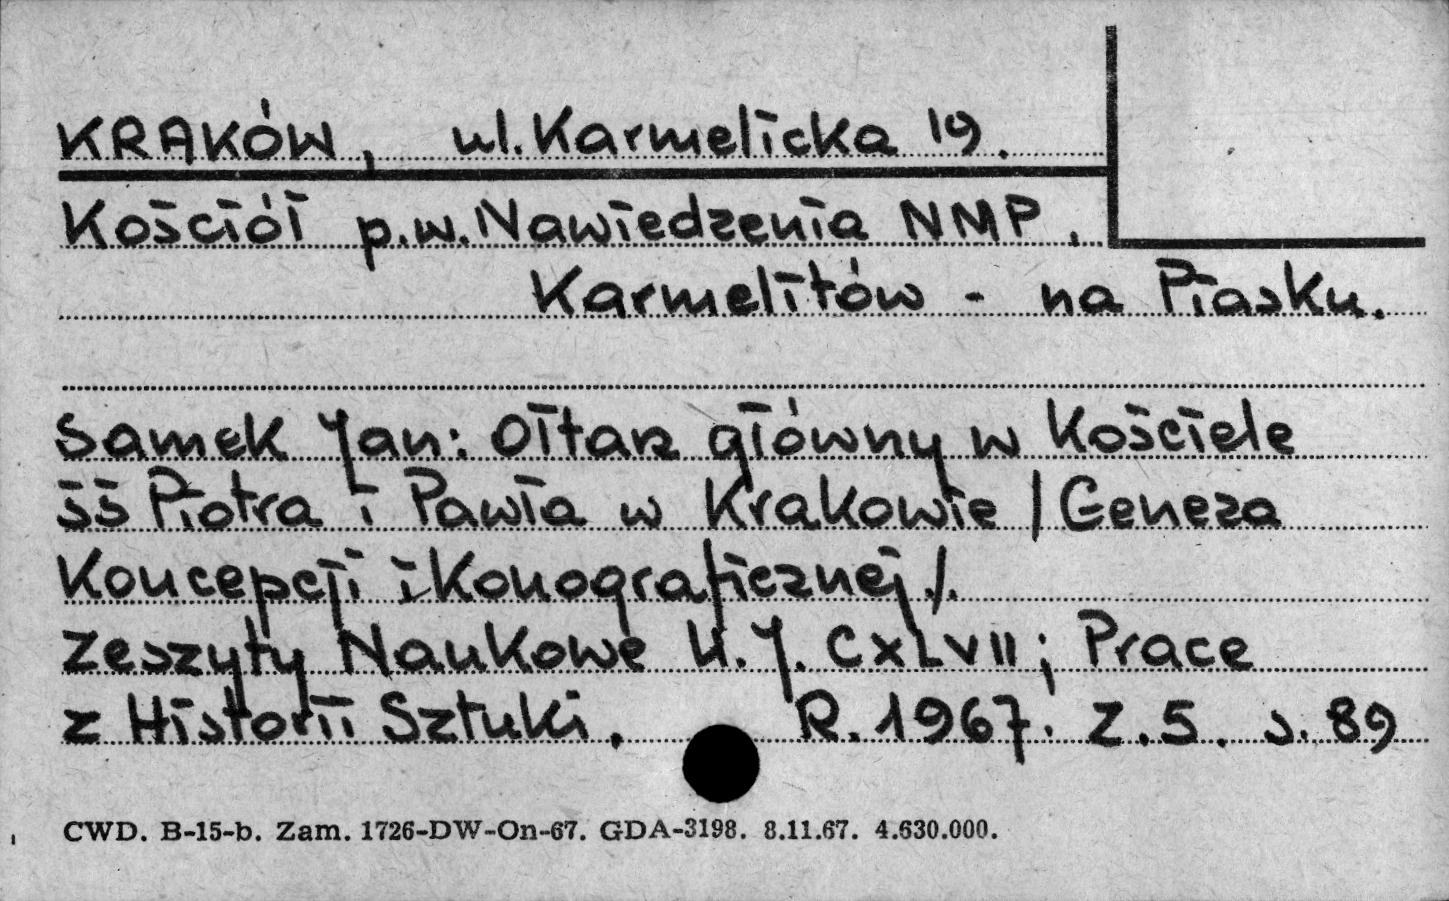 KRAKÓW, ul. Karmelicka 19.
Kościół p.w. Nawiedzenia NMP.
Karmelitów - na Piasku.
Samek Jan: Ołtarz główny w Kościele
śś Piotra i Pawła w Krakowie /Geneza
Koncepcji ikonograficznej/.
Zeszyty Naukowe U.J. CXLVII; Prace
z Historii Sztuki. R. 1967. Z. 5. s. 89
CWD. B-15-b. Zam. 1726-DW-On-67. GDA-3198. 8.11.67. 4.630.000.